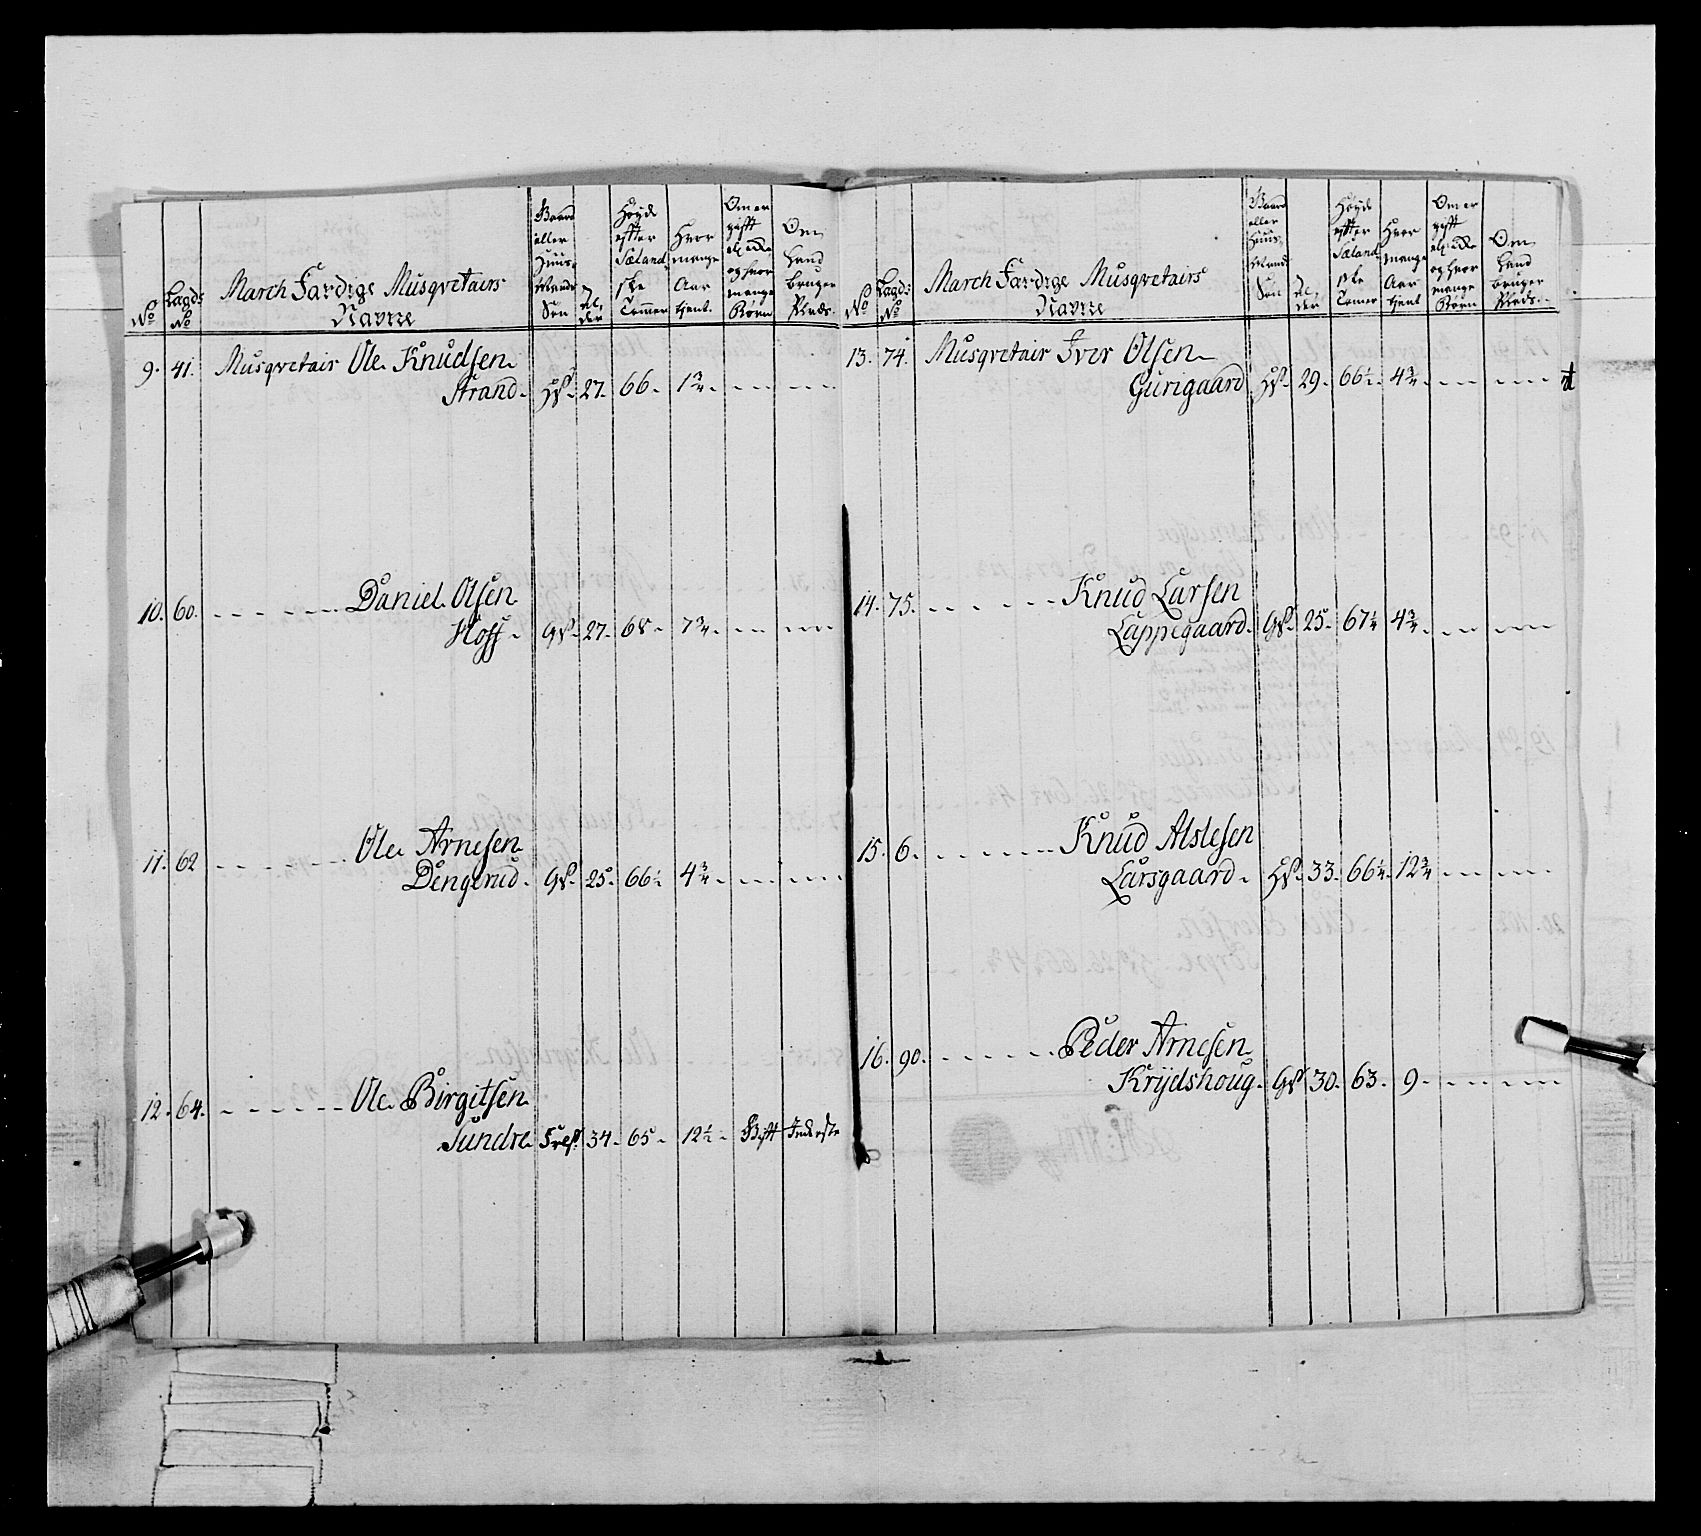 No
Lagds No
March Færdige Musqvetairs Navne
Gaard eller Huus Mands Søn
Alder
Høyde efter Sælandske Tommer
Hvor mange Aar tjent.
Om er gift el: ikke og hvor mange Børn
Om Land bruger Plads
9. 41. Musqvetair Ole Knudsen
Strand. HS. 27. 66. 1 3/4 - - - - - -
10. 60. - - - - - - Daniel Olsen
Hoff. GS. 27. 68. 7 3/4 - - - - - -
11. 62 - - - - - - Ole Arnesen
Dengerud. GS. 25. 66 1/2 4 3/4 - - - - - -
12. 64. - - - - - - Ole Birgitsen
Sundre 34. 65. 12 1/2 Gift Inderste
No
Lagds No
March Færdige Musqvetairs Navne
Gaard eller Huus Mands Søn
Alder
Høyde efter Sælandske Tommer
Hvor mange Aar tjent
Om er gift el: ikke og hvor mange Børn
Om Land bruger Plads
13. 74. Musqvetair Iver Olsen
Gurigaard HS. 29. 66 1/2. 4 3/4 - - - - - -
14. 75. - - - - - - Knud Larsen
Lappegaard. GS. 25. 67 1/4 4 3/4 - - - - - -
15. 6. - - - - - - Knud Alslesen
Larsgaard. HS. 33. 66 1/4. 12 3/4 - - - - - -
16. 90. - - - - - - Peder Arnesen
Krijdshoug. GS 30. 63. 9 - - - - - -